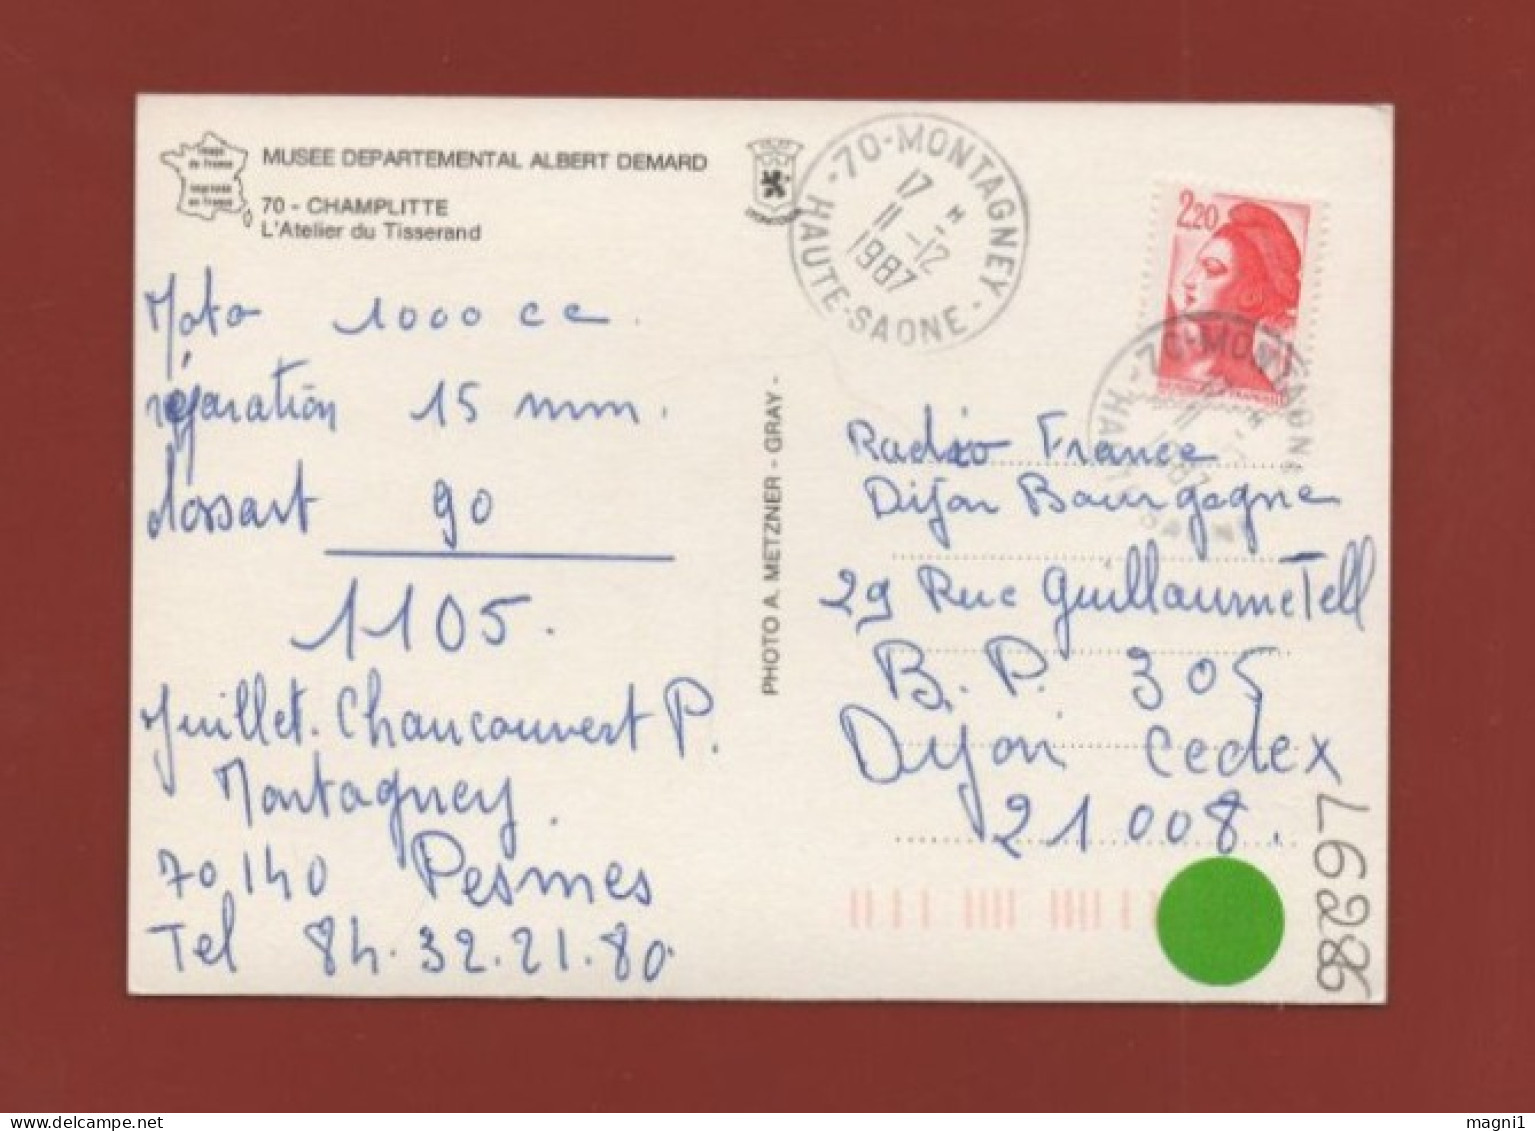 Image
de France
imprimée
en France
MUSEE DEPARTEMENTAL ALBERT DEMARD
70 - CHAMPLITTE
L'Atelier du Tisserand
Moto 1000 cc.
réparation 15 mm.
dossart 90
1105.
Juillet. Chancouvert P.
Montagney.
70140 Pesmes
Tel 84.32.21.80.
PHOTO A. METZNER - GRAY -
70 - MONTAGNEY -
HAUTE-SAONE -
17 H
11 -12
1987
2,20
70-MONTAGNEY
Radio France
Dijon Bourgogne
29 Rue Guillaume Tell
B.P. 305
Dijon Cedex
21008.
magni1